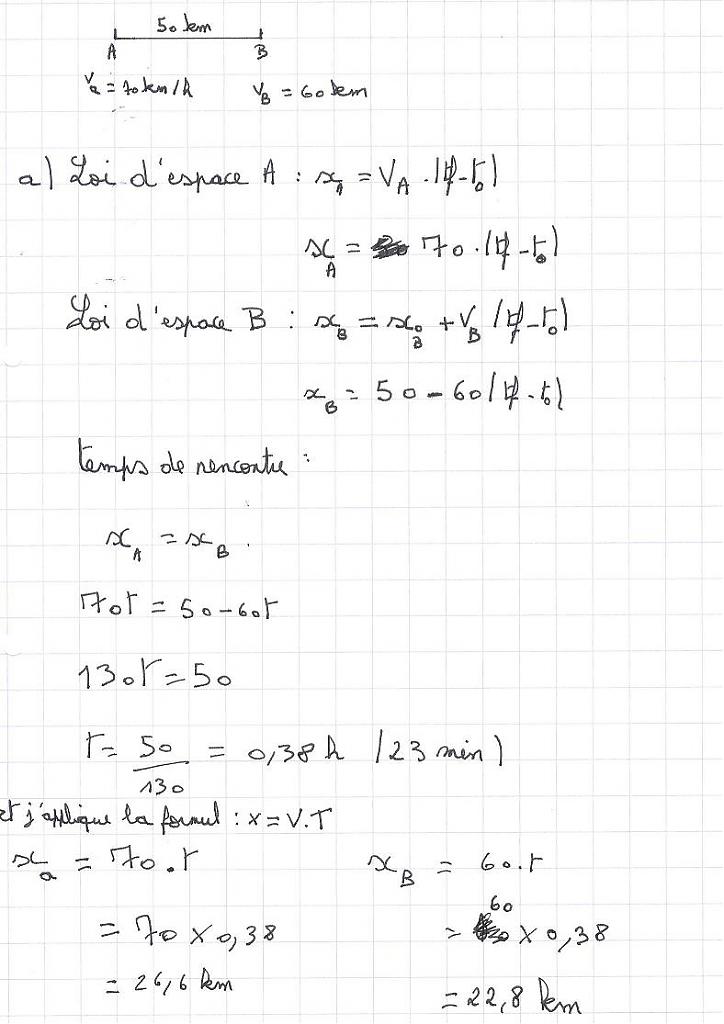 50 km
A B
Va = 70 km/h VB = 60 km
a) Loi d'espace A : xA = VA . (t-t0)
xA = 70 . (t-t0)
Loi d'espace B : xB = x0B + VB (t-t0)
xB = 50 - 60 (t-t0)
temps de rencontre :
xA = xB .
70t = 50-60t
130t = 50
t = 50/130 = 0,38 h (23 min)
et j'applique la formul : x = V.T
xa = 70.t xB = 60.t
= 70 x 0,38 = 60 x 0,38
= 26,6 km = 22,8 km